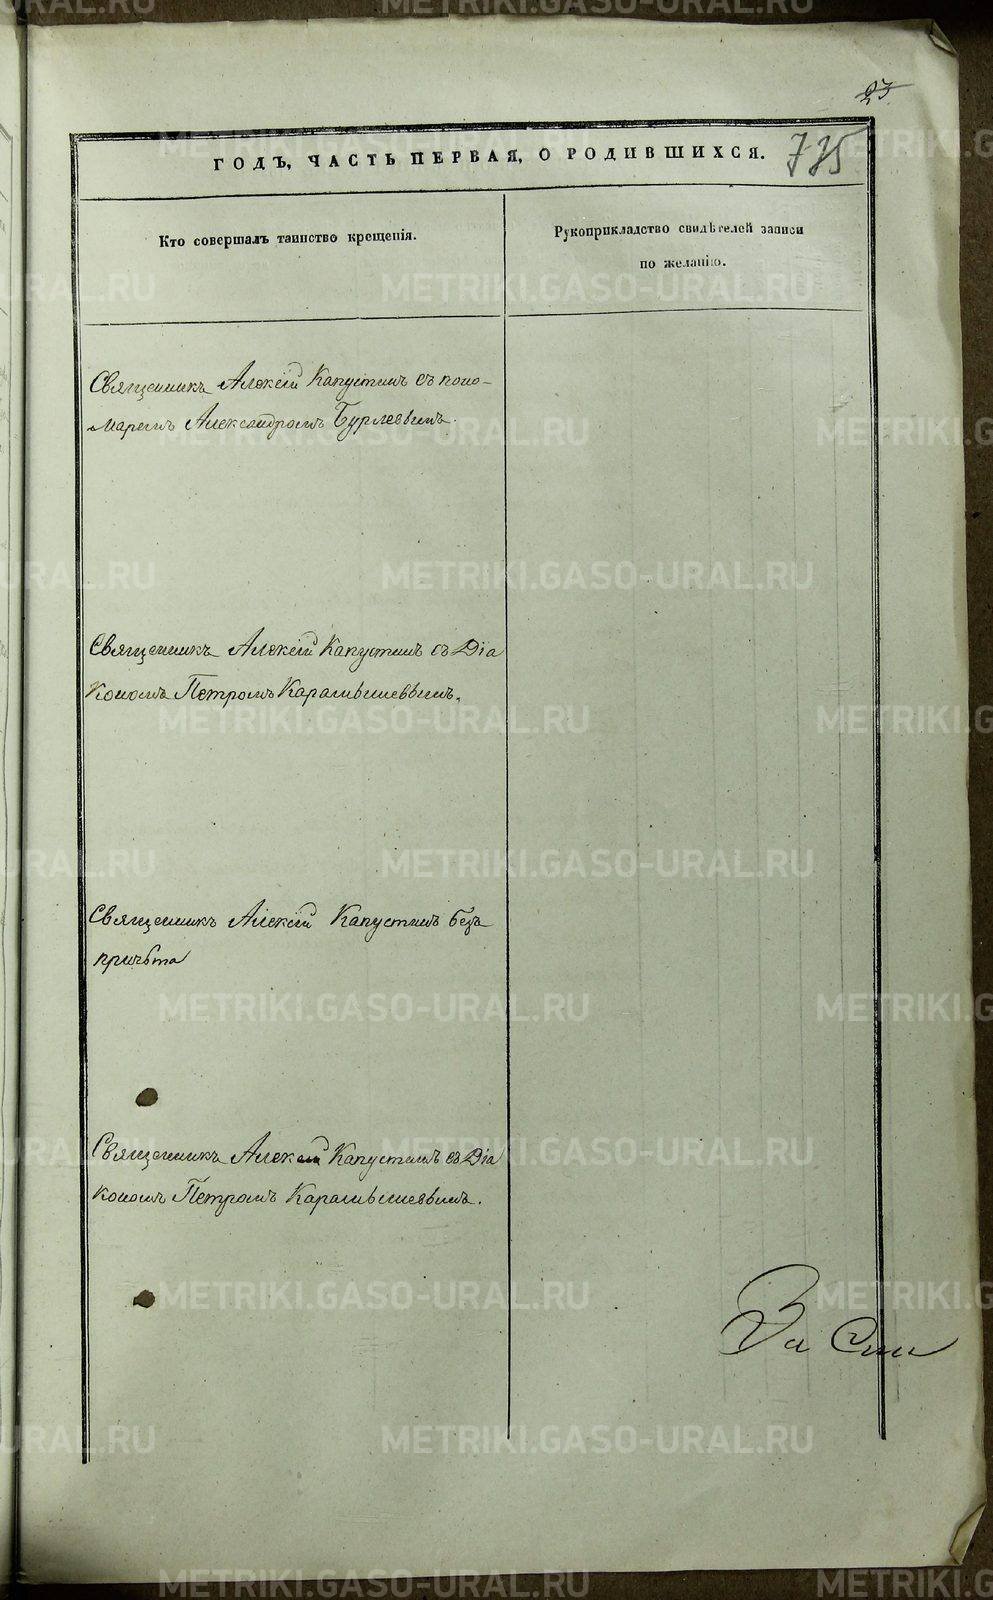 23
ГОДЪ, ЧАСТЬ ПЕРВАЯ, О РОДИВШИХСЯ.
735
Кто совершалъ таинство крещенія.
Рукоприкладство свидѣтелей записи
по желанію.
Священникъ Алексій Капустинъ съ поно-
маремъ Александромъ Бурлевымъ.
Священникъ Алексій Капустинъ съ Діа
кономъ Петромъ Карамышевымъ.
Священникъ Алексій Капустинъ безъ
причта
Священникъ Алексій Капустинъ съ Діа
кономъ Петромъ Карамышевымъ.
За Сми
METRIKI.GASO-URAL.RU